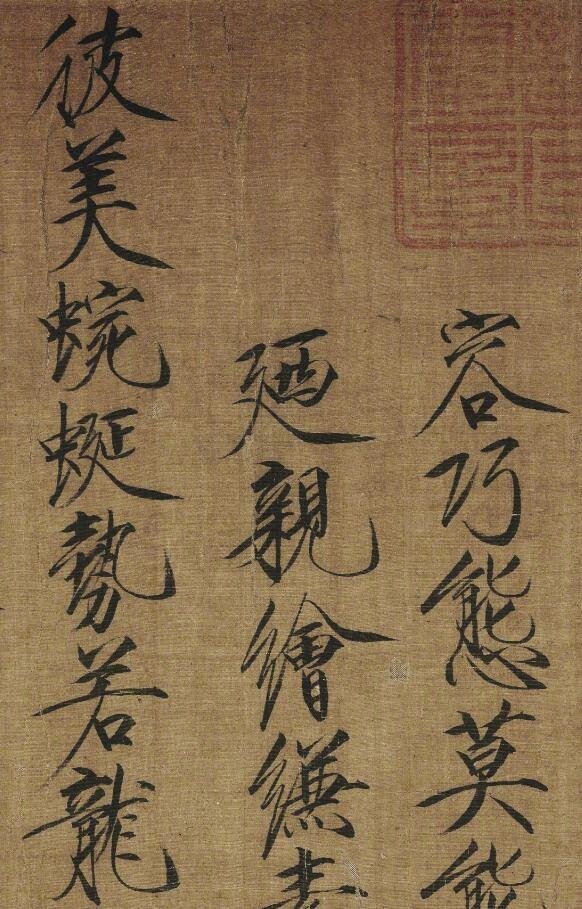 容巧態莫能
廼親繪縑素
彼美蜿蜒勢若龍